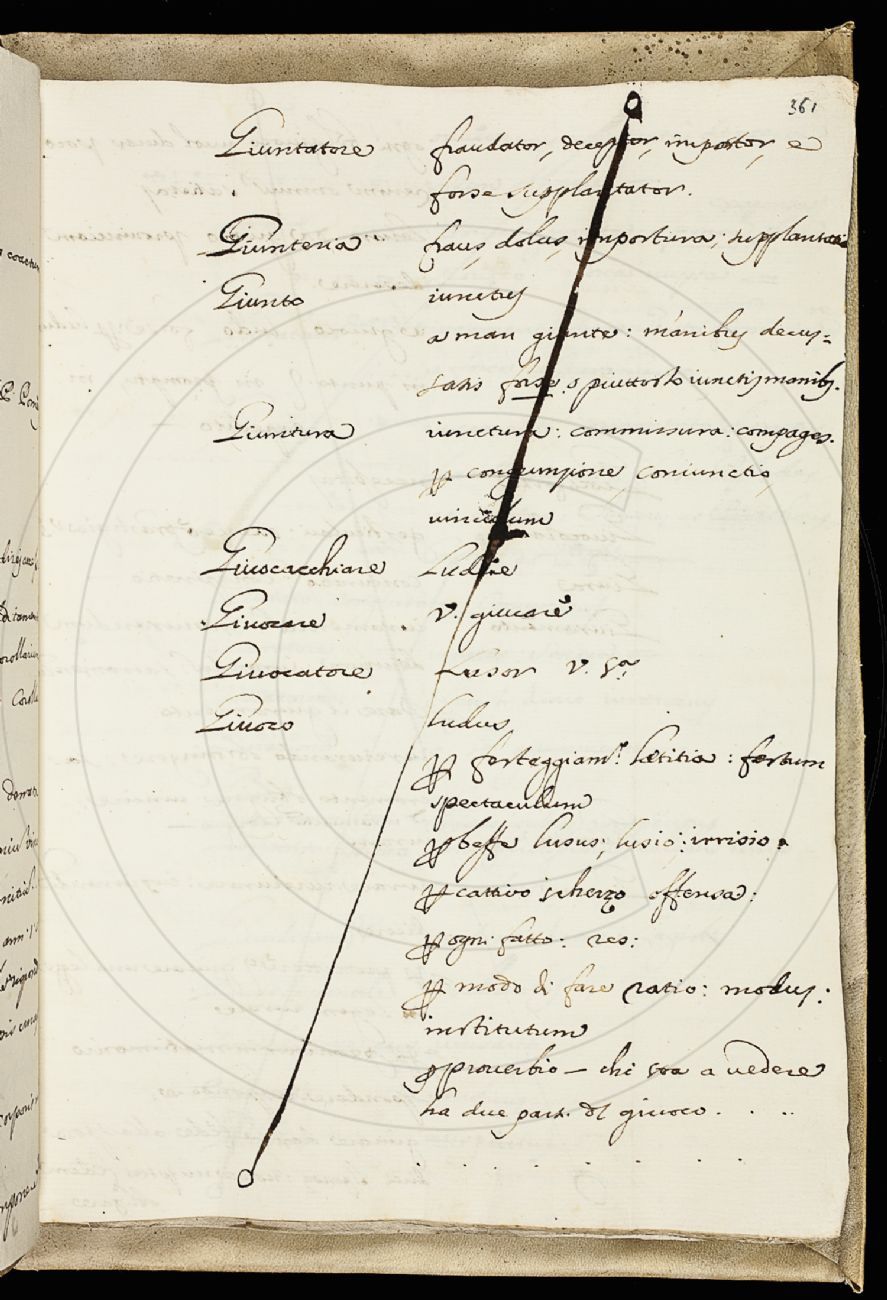 361
Giuntatore fraudator, deceptor, impostor, e
forse supplantator.
Giunteria fraus, dolus, impostura; supplantatio
Giunto iunctus
a man giunte: manibus decus=
satis forse, o piuttosto iunctis manibus.
Giuntura iunctura: commissura: compages.
p congiunzione, coniunctio,
vinculum
Giuocacchiare Ludere
Giuocare v. giucare
Giuocatore Lusor v. sa.
Giuoco ludus
p festeggiamto: lætitia: festum
spectaculum
p beffe lusus; lusio; irrisio.
p cattivo scherzo offensa:
p ogni fatto: res:
p modo di fare ratio: modus:
institutum
proverbio — chi sta a vedere
ha due part. dl giuoco. . ..